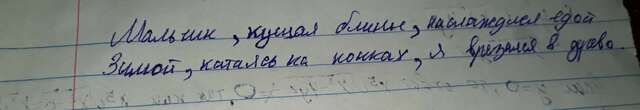 Мальчик, кушая блины, наслаждался едой
Зимой, катаясь на коньках, я врезался в дерево.